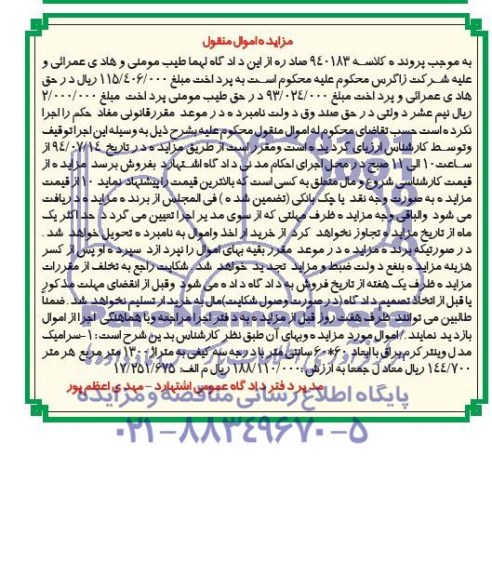 مزایده اموال منقول
به موجب پرونده کلاسه ۹۴۰۱۸۳ صادره از این دادگاه لهما طیب مومنی و هادی عمرائی و
علیه شرکت زاگرس محکوم علیه محکوم است به پرداخت مبلغ ۱۱۵/۴۰۶/۰۰۰ ریال در حق
هادی عمرائی و پرداخت مبلغ ۹۳/۰۲۴/۰۰۰ در حق طیب مومنی پرداخت مبلغ ۲/۰۰۰/۰۰۰
ریال نیم عشر دولتی در حق صندوق دولت نامبرده در موعد مقرر قانونی مفاد حکم را اجرا
نکرده است حسب تقاضای محکوم له اموال منقول محکوم علیه بشرح ذیل به وسیله این اجرا توقیف
وتوسط کارشناس ارزیای گردیده است ومقرر است از طریق مزایده در تاریخ ۹۴/۰۷/۱۴ از
ساعت ۱۰ الی ۱۱ صبح در محل اجرای احکام مدنی دادگاه اشتهارد بفروش برسد مزایده از
قیمت کارشناسی شروع و مال متعلق به کسی است که بالاترین قیمت را پیشنهاد نماید ۱۰٪ از قیمت
مزایده به صورت وجه نقد یا چک بانکی (تضمین شده) فی المجلس از برنده مزایده دریافت
می شود والباقی وجه مزایده ظرف مهلتی که از سوی مدیر اجرا تعیین می گردد حداکثر یک
ماه از تاریخ مزایده تجاوز نخواهد کرد از خریدار اخذ واموال به نامبرده تحویل خواهد شد .
در صورتیکه برنده مزایده در موعد مقرر بقیه بهای اموال را نپردازد سپرده او پس از کسر
هزینه مزایده بنفع دولت ضبط و مزاید تجدید خواهد شد. شکایت راجع به تخلف از مقررات
مزایده ظرف یک هفته از تاریخ فروش به دادگاه داده می شود وقبل از انقضای مهلت مذکور
یا قبل از اتخاذ تصمیم دادگاه (در صورت وصول شکایت) مال به خریدار تسلیم نخواهد شد . ضمنا
طالبین می توانند ظرف هفت روز قبل از مزایده به دفتر اجرا مراجعه وبا هماهنگی اجرا از اموال
بازدید نمایند./ اموال مورد مزایده وبهای آن طبق نظر کارشناس بدین شرح است: ۱-سرامیک
مدل وینتر کرم براق با ابعاد ۶۰*۶۰ سانتی متر با درجه سه کیفی به متراژ ۱۳۰۰ متر مربع هر متر
۱۴۴/۷۰۰ ریال معادل جمعا به ارزش: ۱۸۸/۱۱۰/۰۰۰ ریال م الف: ۱۷/۲۵۱/۶۷۵
مدیر دفتر دادگاه عمومی اشتهارد - مهدی اعظم پور
پایگاه اطلاع رسانی مناقصه و مزایده
۰۲۱-۸۸۳۴۹۶۷۰-۵